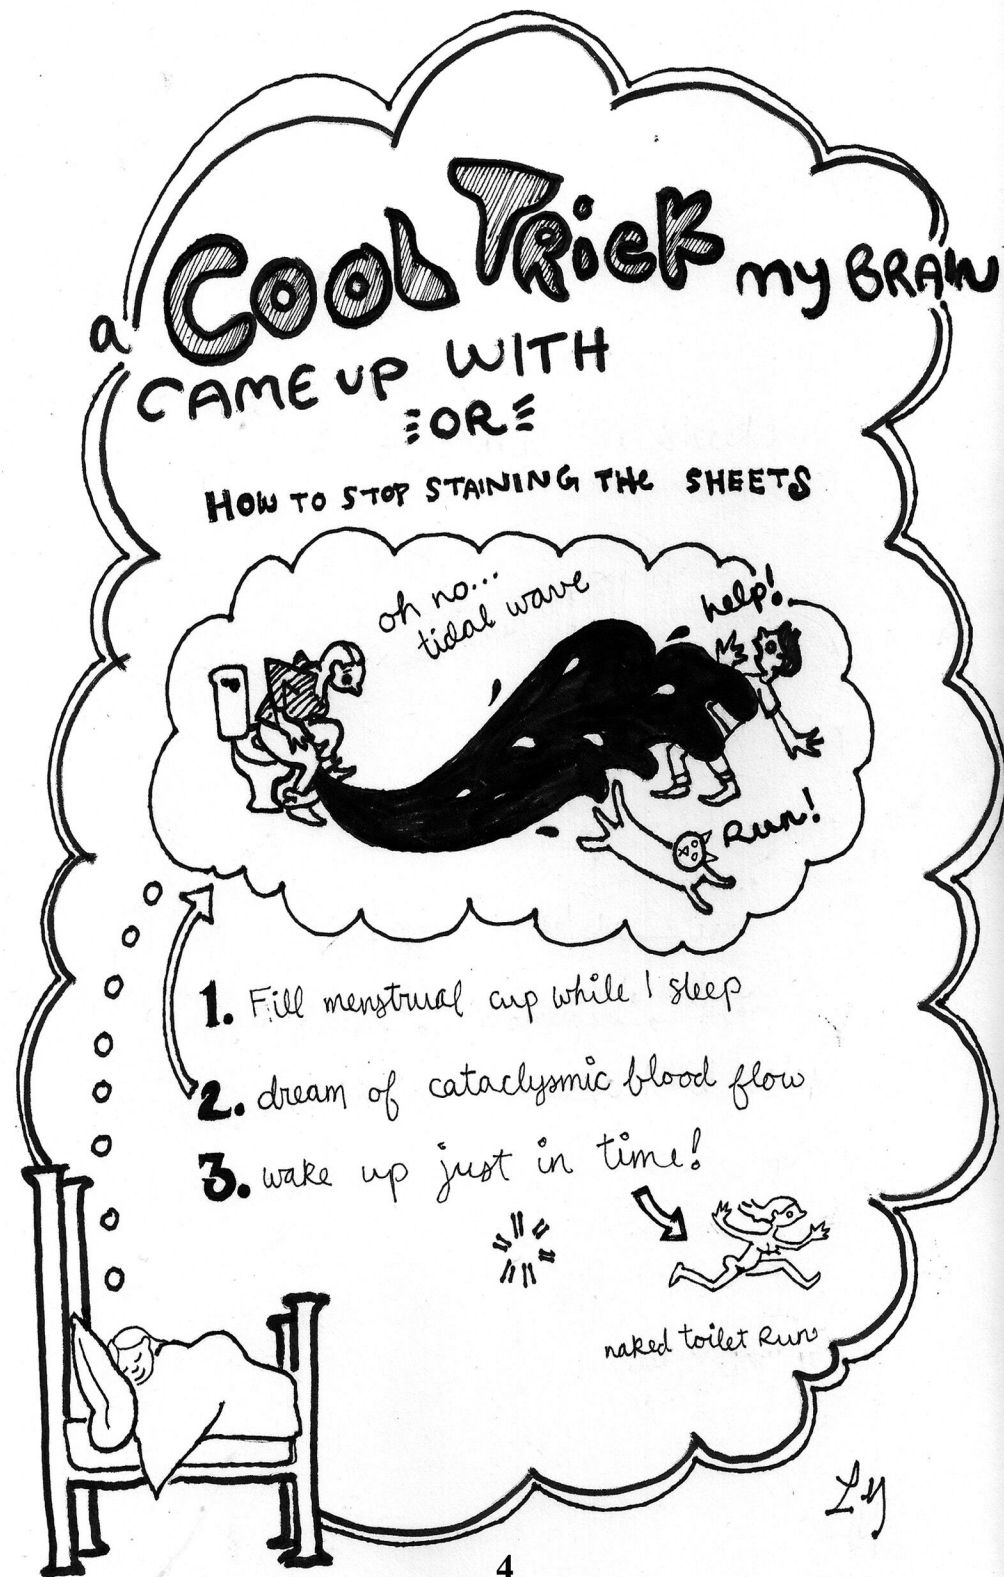 a COOL TRicK my BRAIN
CAME UP WITH
OR
HOW TO STOP STAINING THe SHEETS
oh no...
tidal wave
help!
Run!
1. Fill menstrual cup while I sleep
2. dream of cataclysmic blood flow
3. wake up just in time!
naked toilet Run
LY
4